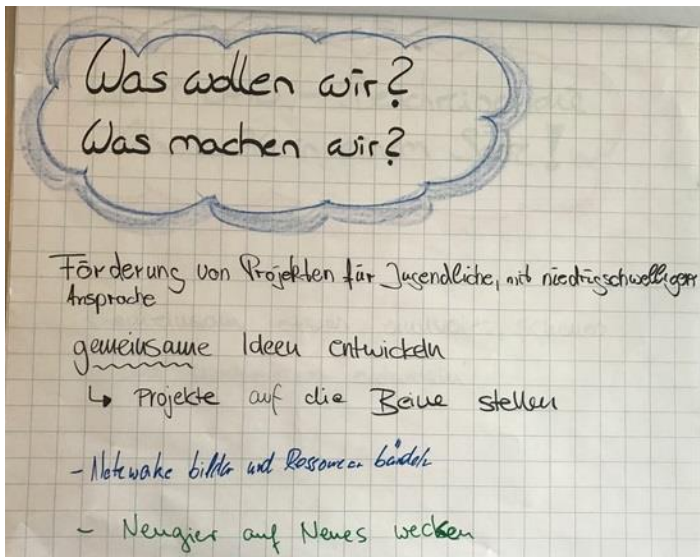 Was wollen wir?
Was machen wir?
Förderung von Projekten für Jugendliche, mit niedrigschwelliger
Ansprache
gemeinsame Ideen entwickeln
↳ Projekte auf die Beine stellen
- Netzwerke bilden und Ressourcen bündeln
- Neugier auf Neues wecken